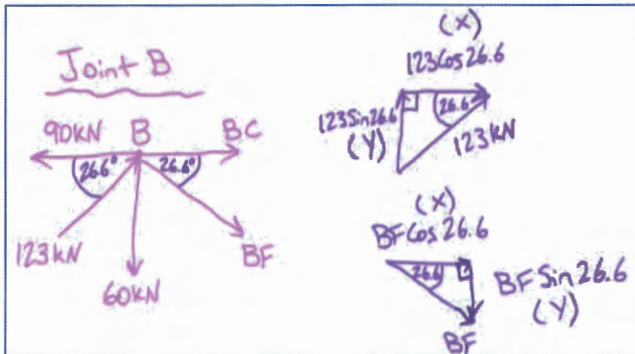 Joint B
90KN B BC
26.6° 26.6°
123KN BF
60KN
(X)
123Cos26.6
123Sin26.6 26.6°
(Y) 123KN
(X)
BFCos26.6
26.6 BFSin26.6
(Y)
BF